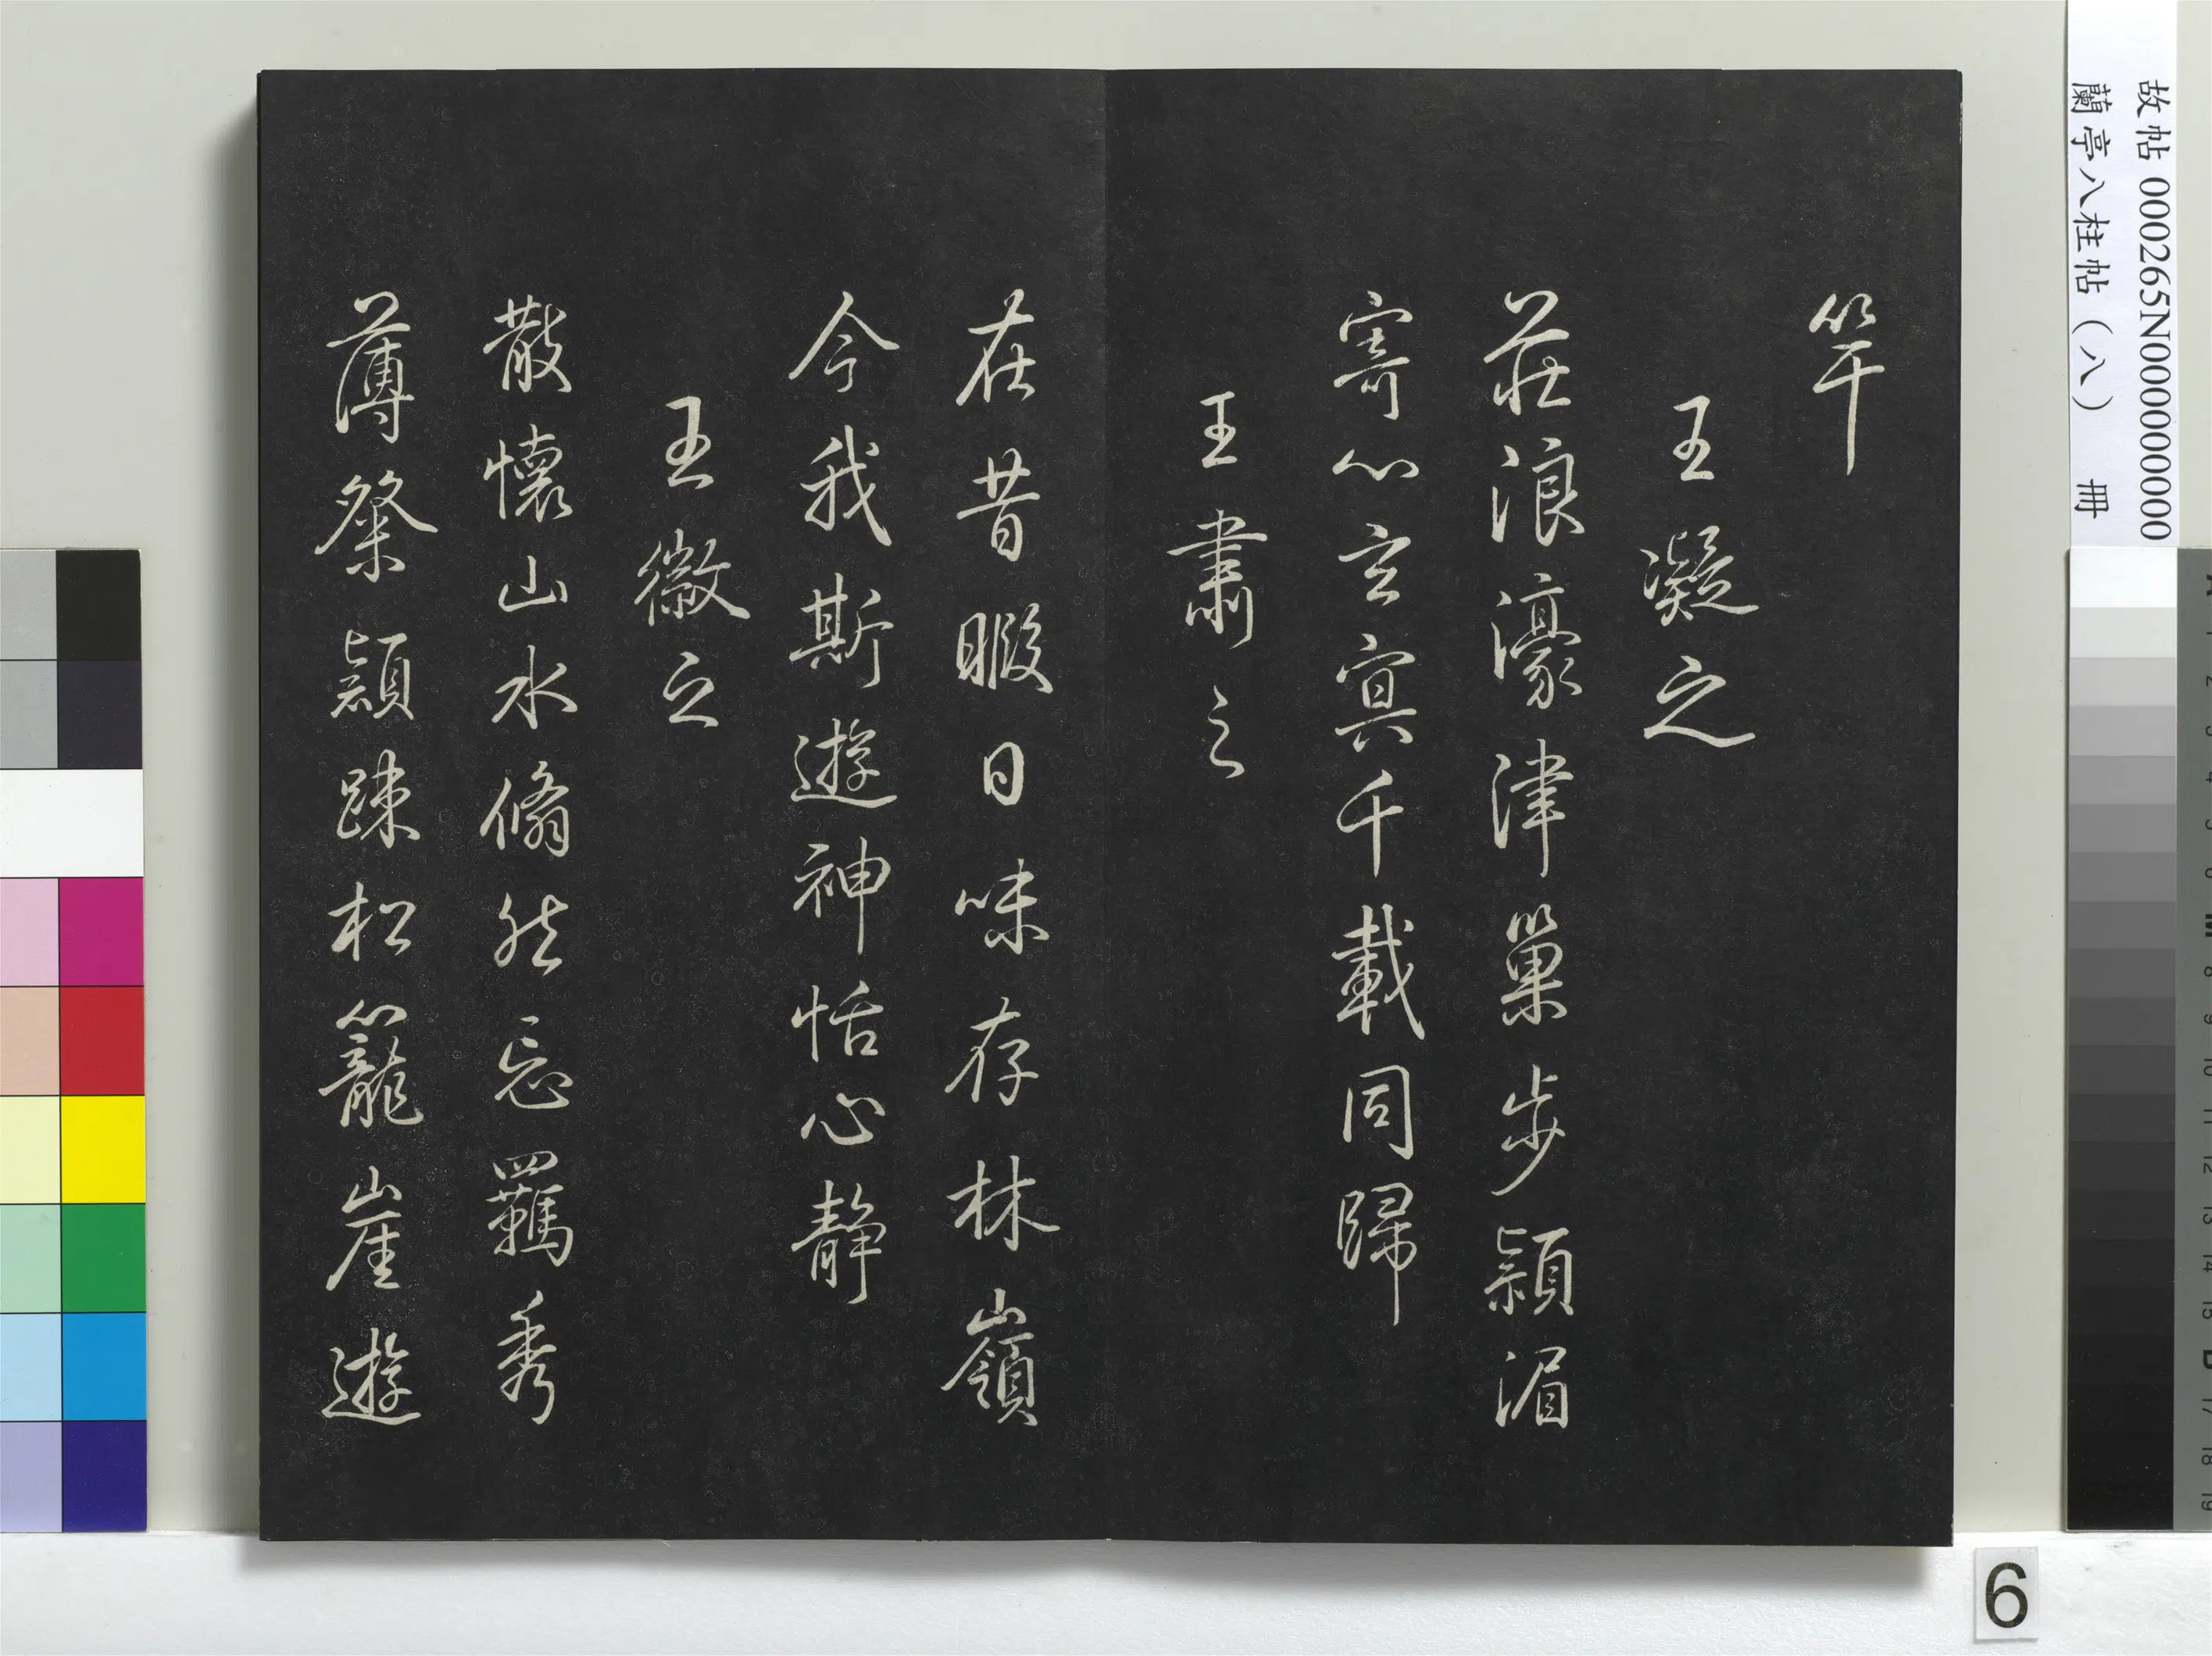 竿
王凝之
莊浪濠津巢步潁湄
寄心玄冥千載同歸
王肅之
在昔暇日味存林嶺
今我斯遊神恬心静
王徽之
散懷山水翛然忘羈秀
薄粲潁踈松籠崖遊
故帖 000265N000000000
蘭亭八柱帖（八） 冊
6